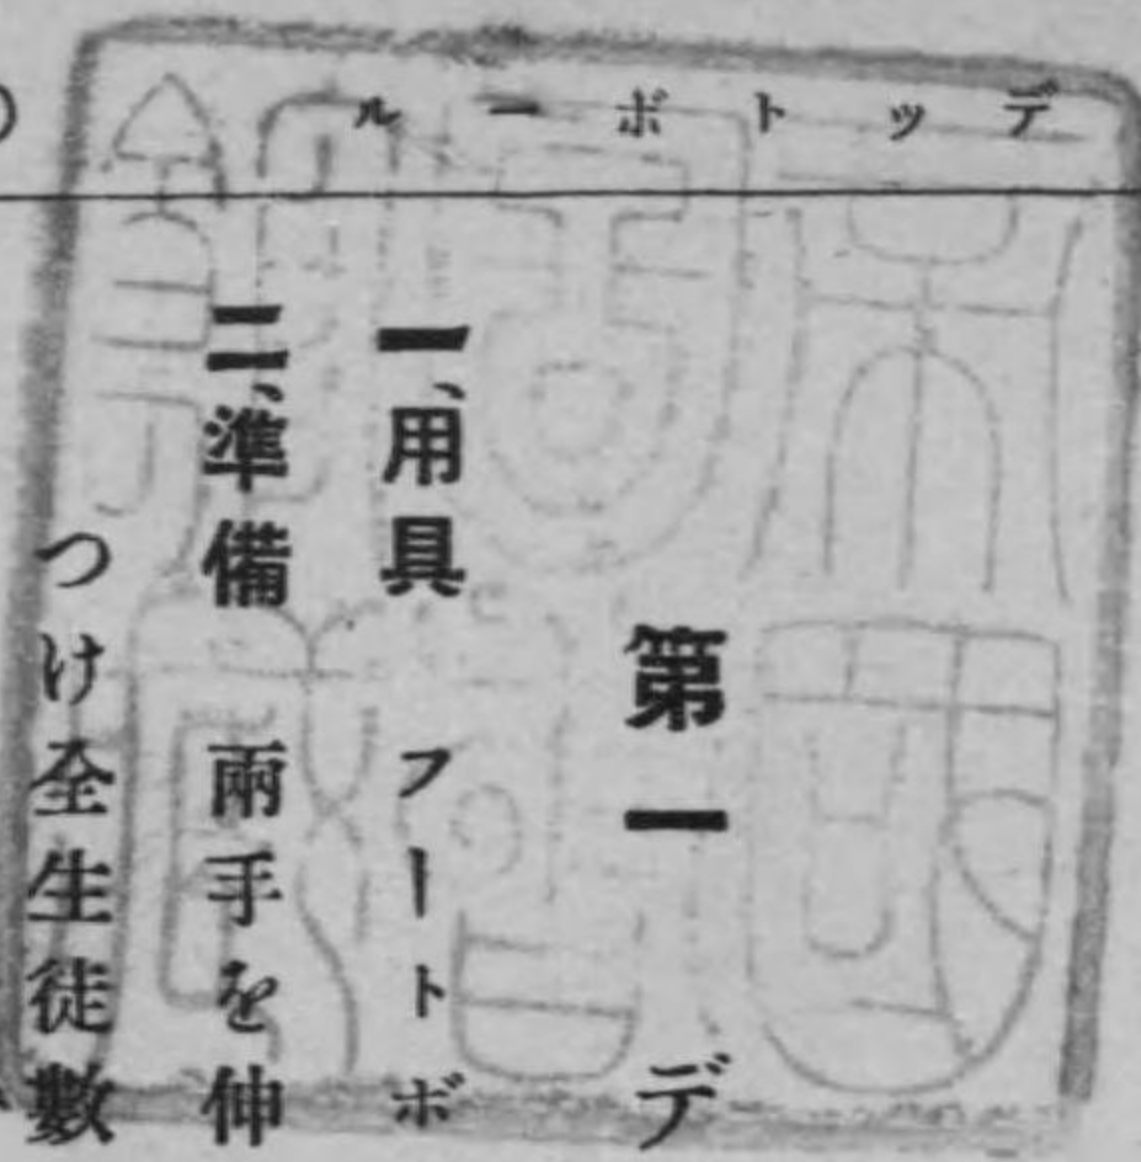 デットボール
第一 デ
一、用具 フートボ
二、準備 兩手を伸
つけ全生徒數